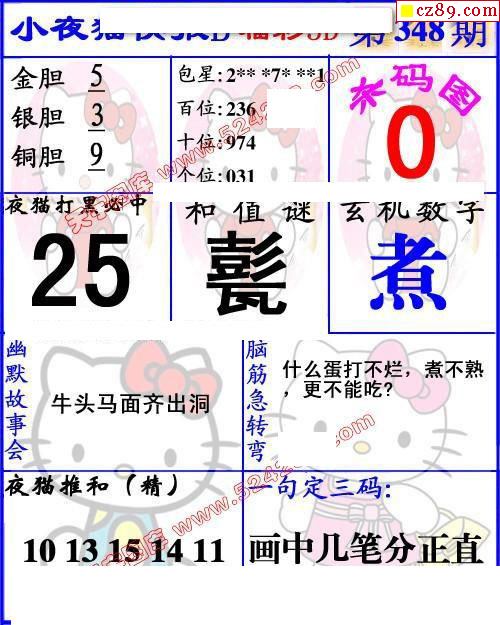 cz89.com
小夜猫 D 3D 第348期
金胆 5
银胆 3
铜胆 9
包星: 2** *7* **1
百位: 236
十位: 974
个位: 031
杀码图
0
夜猫打黑必中
25
和值谜
玄机数字
煮
幽默故事会
牛头马面齐出洞
脑筋急转弯
什么蛋打不烂，煮不熟
，更不能吃?
夜猫推和（精）
10 13 15 14 11
一句定三码:
画中几笔分正直